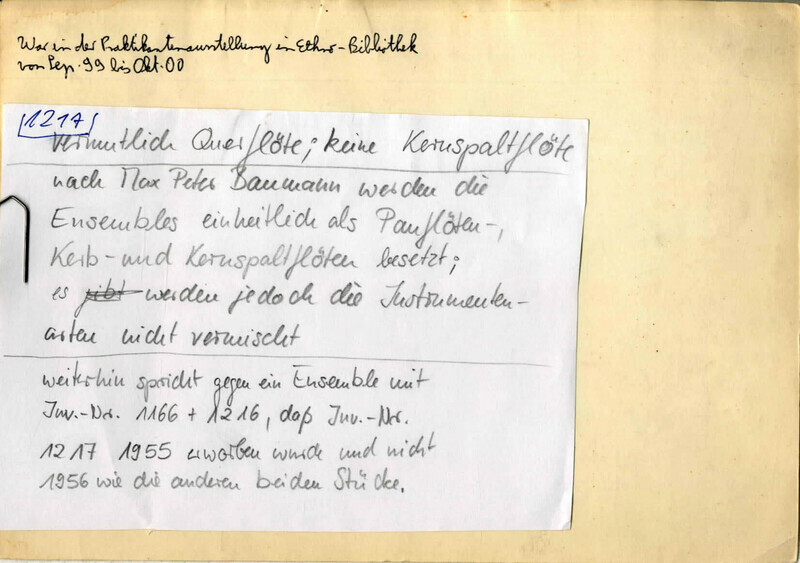 War in der Praktikantenausstellung in Ethno-Bibliothek
von Sep. 99 bis Okt. 00
1217
vermutlich Querflöte; keine Kernspaltflöte
nach Max Peter Baumann werden die
Ensembles einheitlich als Panflöten-,
Kerb- und Kernspaltflöten besetzt;
es gibt werden jedoch die Instrumenten-
arten nicht vermischt
weiterhin spricht gegen ein Ensemble mit
Inv.-Nr. 1166 + 1216, daß Inv.-Nr.
1217 1955 erworben wurde und nicht
1956 wie die anderen beiden Stücke.